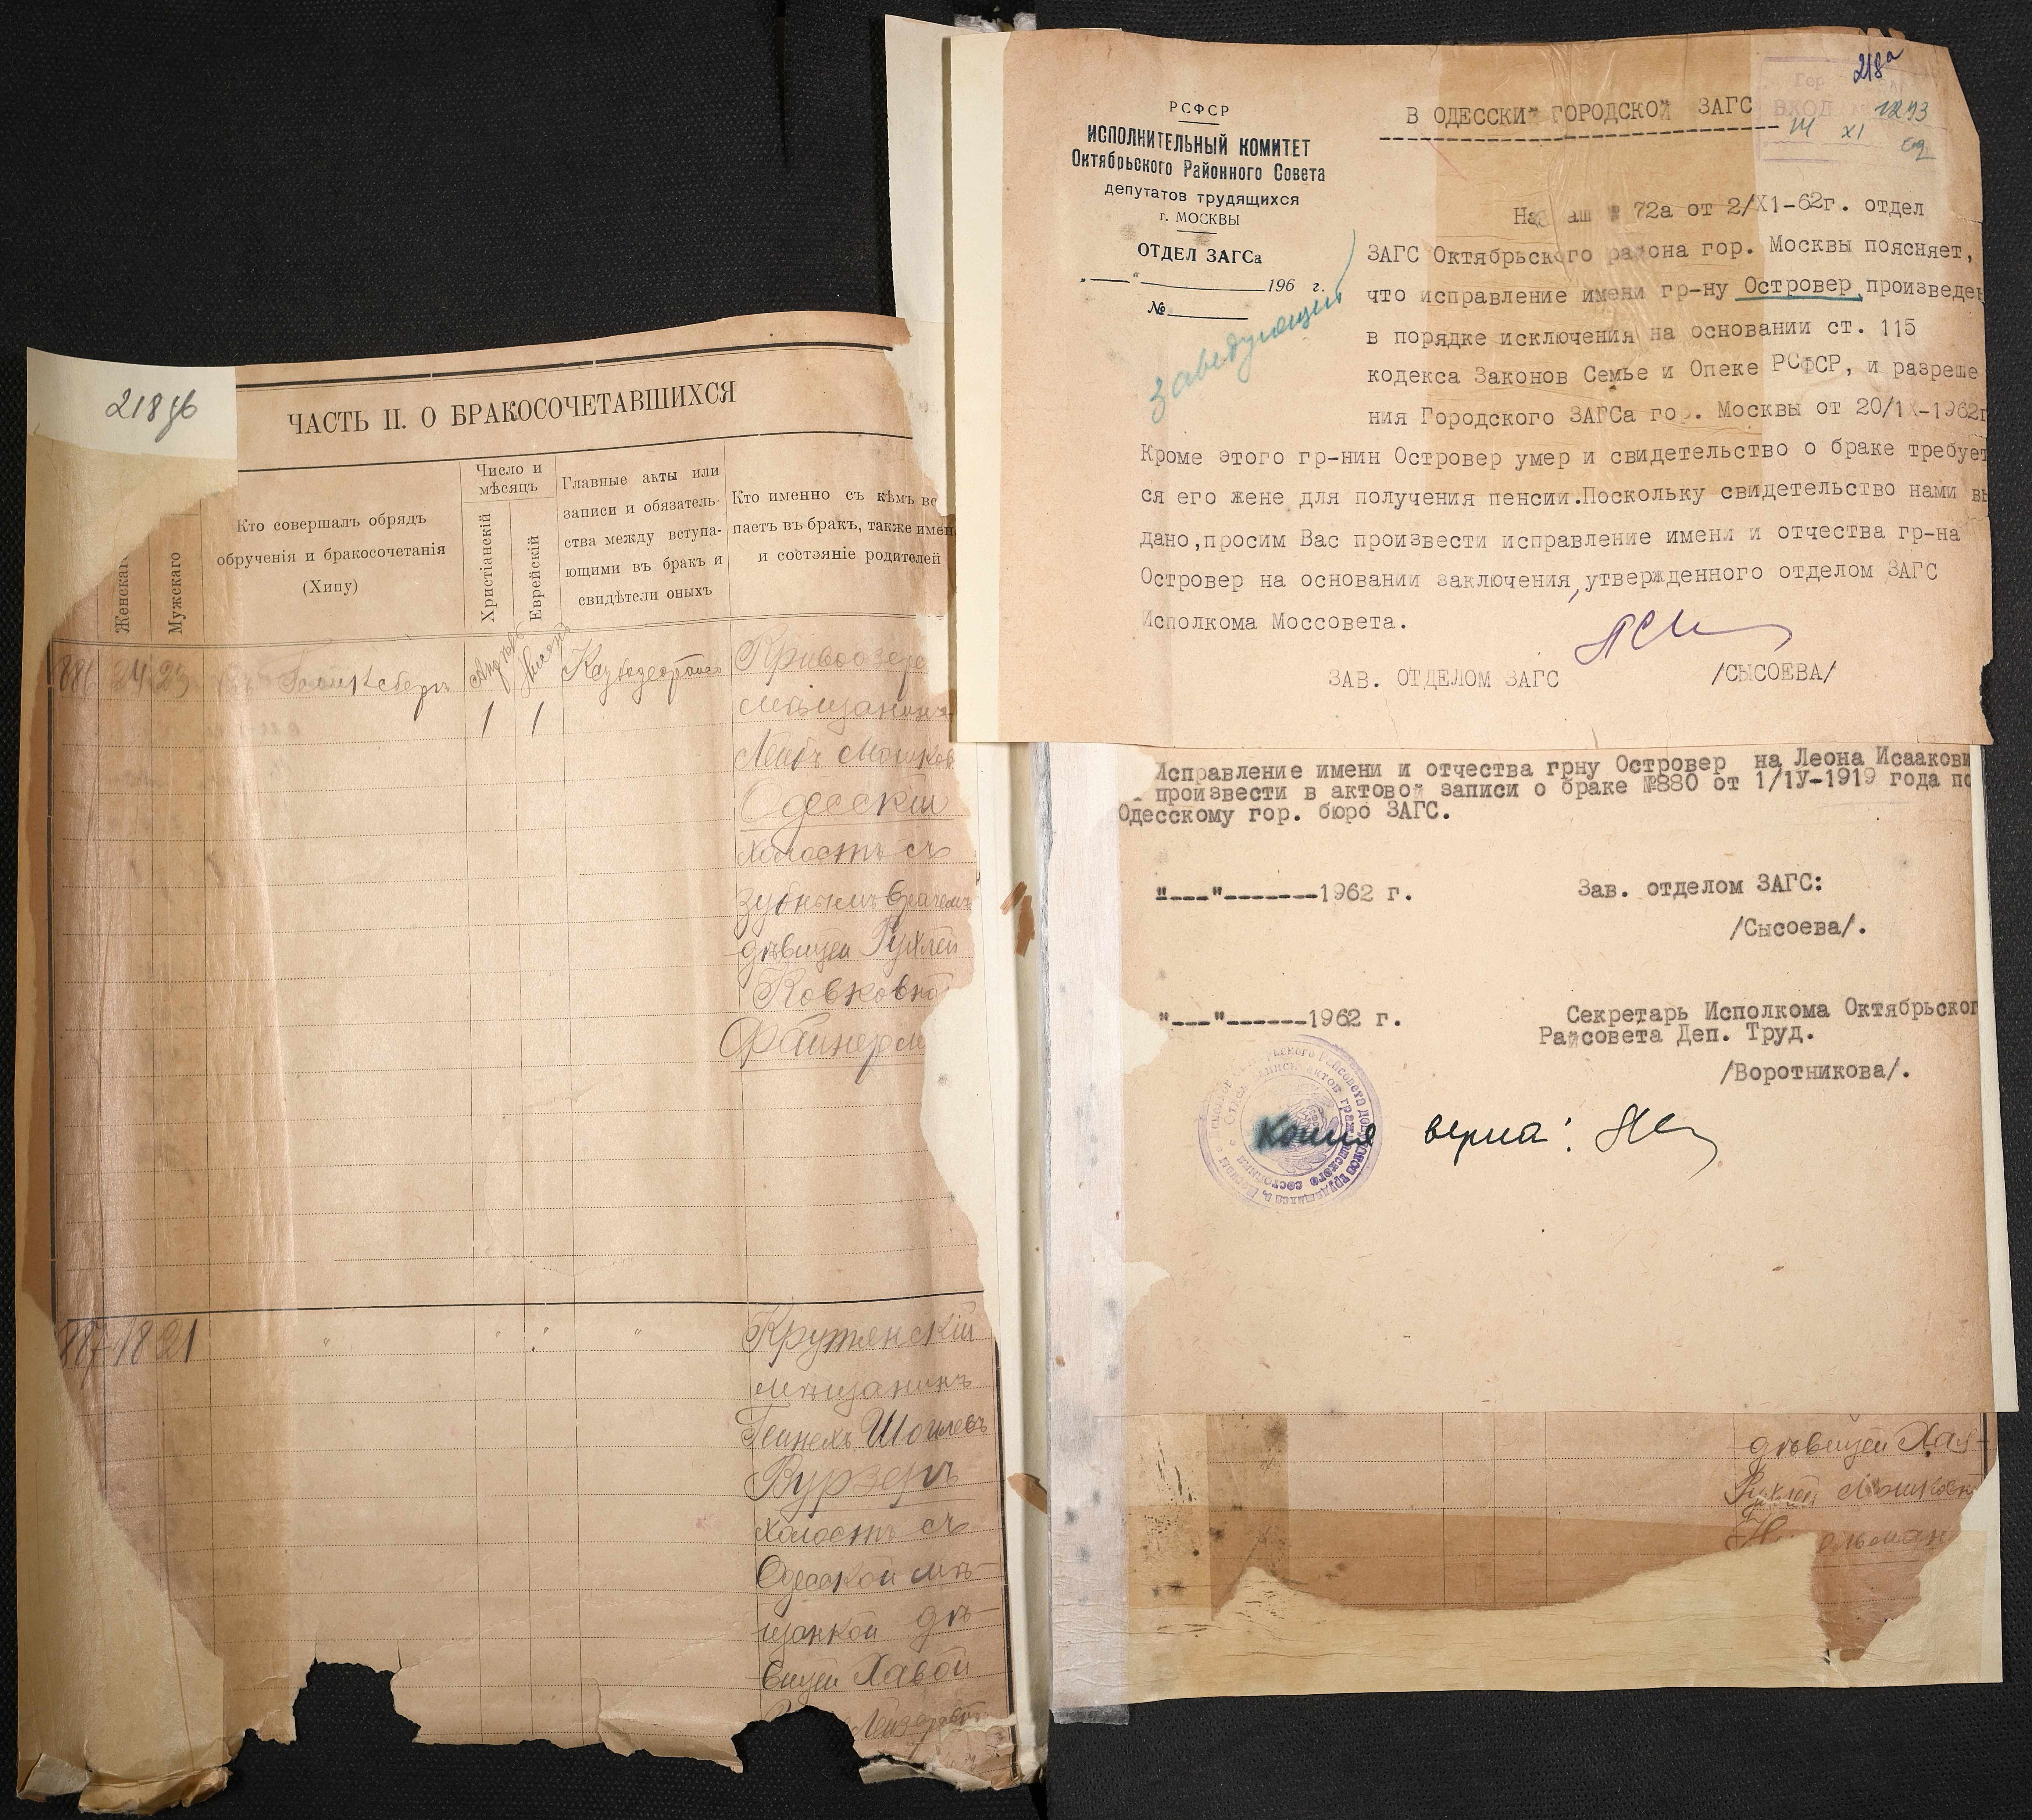 218 об
ЧАСТЬ II. О БРАКОСОЧЕТАВШИХСЯ
Женскаго
Мужскаго
Кто совершалъ обрядъ
обрученія и бракосочетанія
(Хипу)
Число и
мѣсяцъ
Христіанскій
Еврейскій
Главные акты или
записи и обязатель-
ства между вступа-
ющими въ бракъ и
свидѣтели оныхъ
Кто именно съ кѣмъ вс
паетъ въ бракъ, также имен
и состояніе родителей
886 24 23
1 1
Кривоозер
мѣщанинъ
Лейбъ Мошков
Одесскій
холостъ съ
зубнымъ врачемъ
дѣвицей Рухлей
Ковковно
Файнерм
887 18 21 " " " "
Крутянскій
мѣщанинъ
Геинехъ Шоилевъ
Вурзеръ
холостъ съ
Одесской мѣ-
щанкой дѣ-
вицей Хавой
Лейзеров
218а
РСФСР
ИСПОЛНИТЕЛЬНЫЙ КОМИТЕТ
Октябрьского Районного Совета
депутатов трудящихся
г. МОСКВЫ
ОТДЕЛ ЗАГСа
„——“ 196 г.
№
заведующий
В ОДЕССКИЙ ГОРОДСКОЙ ЗАГС
Гор
ВХОД 1293
14 XI
На ваш № 72а от 2/XI-62г. отдел
ЗАГС Октябрьского района гор. Москвы поясняет,
что исправление имени гр-ну Островер, произведен
в порядке исключения на основании ст. 115
кодекса Законов Семье и Опеке РСФСР, и разреше
ния Городского ЗАГСа гор. Москвы от 20/IX-1962г
Кроме этого гр-нин Островер умер и свидетельство о браке требует
ся его жене для получения пенсии.Поскольку свидетельство нами вы
дано,просим Вас произвести исправление имени и отчества гр-на
Островер на основании заключения,утвержденного отделом ЗАГС
Исполкома Моссовета.
ЗАВ. ОТДЕЛОМ ЗАГС /СЫСОЕВА/
Исправление имени и отчества грну Островер на Леона Исаакови
произвести в актовой записи о браке №880 от 1/1У-1919 года по
Одесскому гор. бюро ЗАГС.
"---"-------1962 г. Зав. отделом ЗАГС:
/Сысоева/.
"---"------1962 г. Секретарь Исполкома Октябрьског
Райсовета Деп. Труд.
/Воротникова/.
Копия верна:
дѣвицей Хая-
Рухлей Мошковн